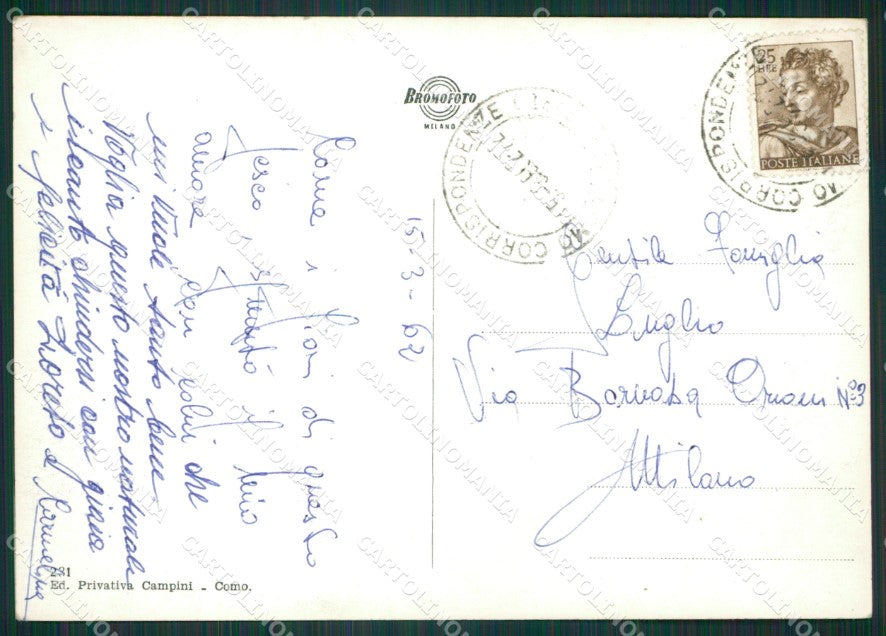 BROMOFOTO
MILANO
25
LIRE
POSTE ITALIANE
CORRISPONDENZE
CORRISPONDENZE
15-3-62
Come i fiori di questo
Pesco è spuntato il mio
amore con colui che
mi vuole tanto bene
Voglia questo nostro naturale
incanto chiudersi con gioia
e felicità Loreto e
Gentile Famiglia
Luglio
Via Oriani N°3
Milano
231
Ed. Privativa Campini - Como.
CARTOLINOMANIA